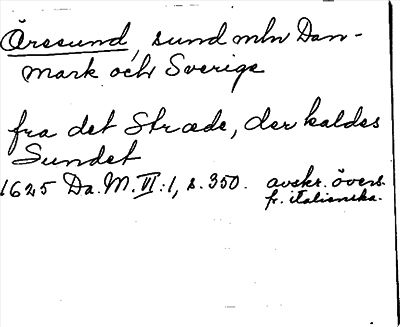 Öresund, sund mln Dan-
mark och Sverige
fra det Stræde, der kaldes
Sundet
1625 Da. M. VI:1, s. 350. avskr. övers.
fr. italienska.